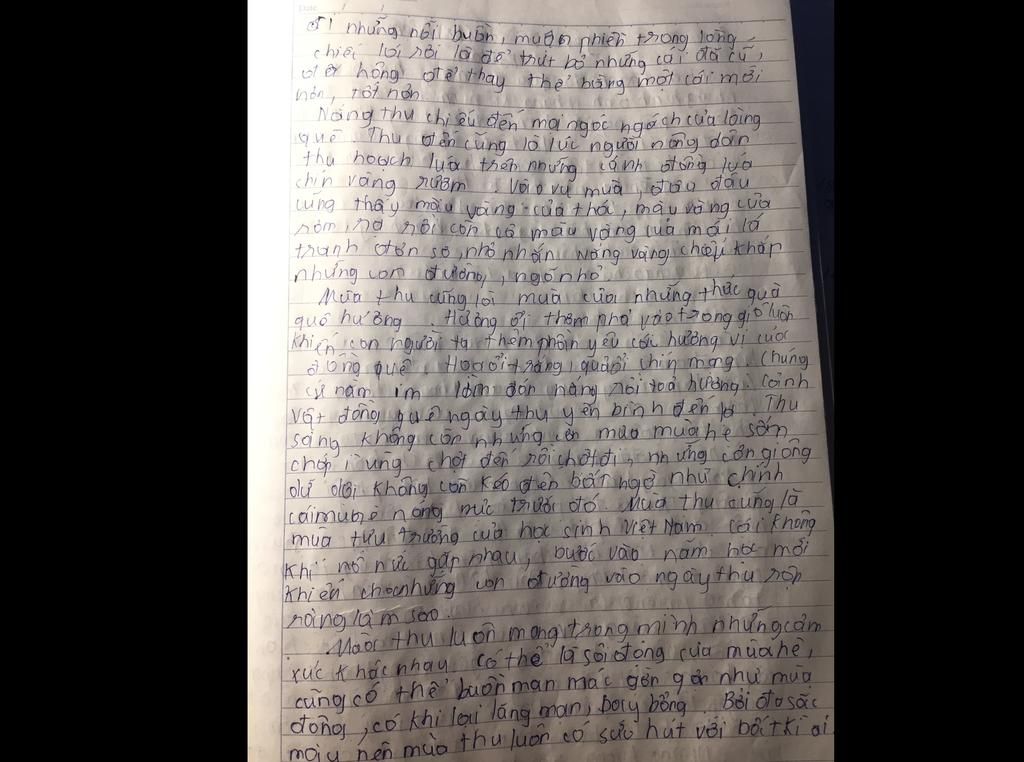 đi những nỗi buồn, muộn phiền trong lòng
chiếc lá rơi là để trút bỏ những cái đã cũ,
đã hỏng để thay thế bằng một cái mới
hơn, tốt hơn
Nắng thu chiếu đến mọi ngóc ngách của làng
quê. Thu đến cũng là lúc người nông dân
thu hoạch lúa trên những cánh đồng lúa
chín vàng ruộm. Vào vụ mùa, đâu đâu
cũng thấy màu vàng của thó, màu vàng của
rơm, rạ rồi còn cả màu vàng của mái lá
tranh đơn sơ, nhỏ nhắn nắng vàng chiếu khắp
những con đường, ngõ nhỏ.
Mùa thu cũng là mùa của những thức quà
quê hương. Hương ổi thơm phả vào trong gió luôn
khiến con người ta thêm phần yêu cái hương vị của
đồng quê. Hoa ổi trắng, quả ổi chín mọng. Chúng
cứ nằm im lìm đón nắng rồi toả hương. Cảnh
vật đồng quê ngày thu yên bình đến lạ. Thu
sang không còn những cơn mưa mùa hè sấm
chớp ì ùng chợt đến rồi chợt đi, những cơn giông
dữ dội không còn kéo đến bất ngờ như chính
cái mùa hè nóng nực trước đó. Mùa thu cũng là
mùa tựu trường của học sinh Việt Nam. Cái không
khí nô nức gặp nhau, bước vào năm học mới
khiến cho những con đường vào ngày thu rộn
ràng làm sao.
Mùa thu luôn mang trong mình những cảm
xúc khác nhau. Có thể là sôi động của mùa hè,
cũng có thể buồn man mác gần gũi như mùa
đông, có khi lại lãng mạn, bay bổng. Bởi đa sắc
màu nên mùa thu luôn có sức hút với bất kì ai